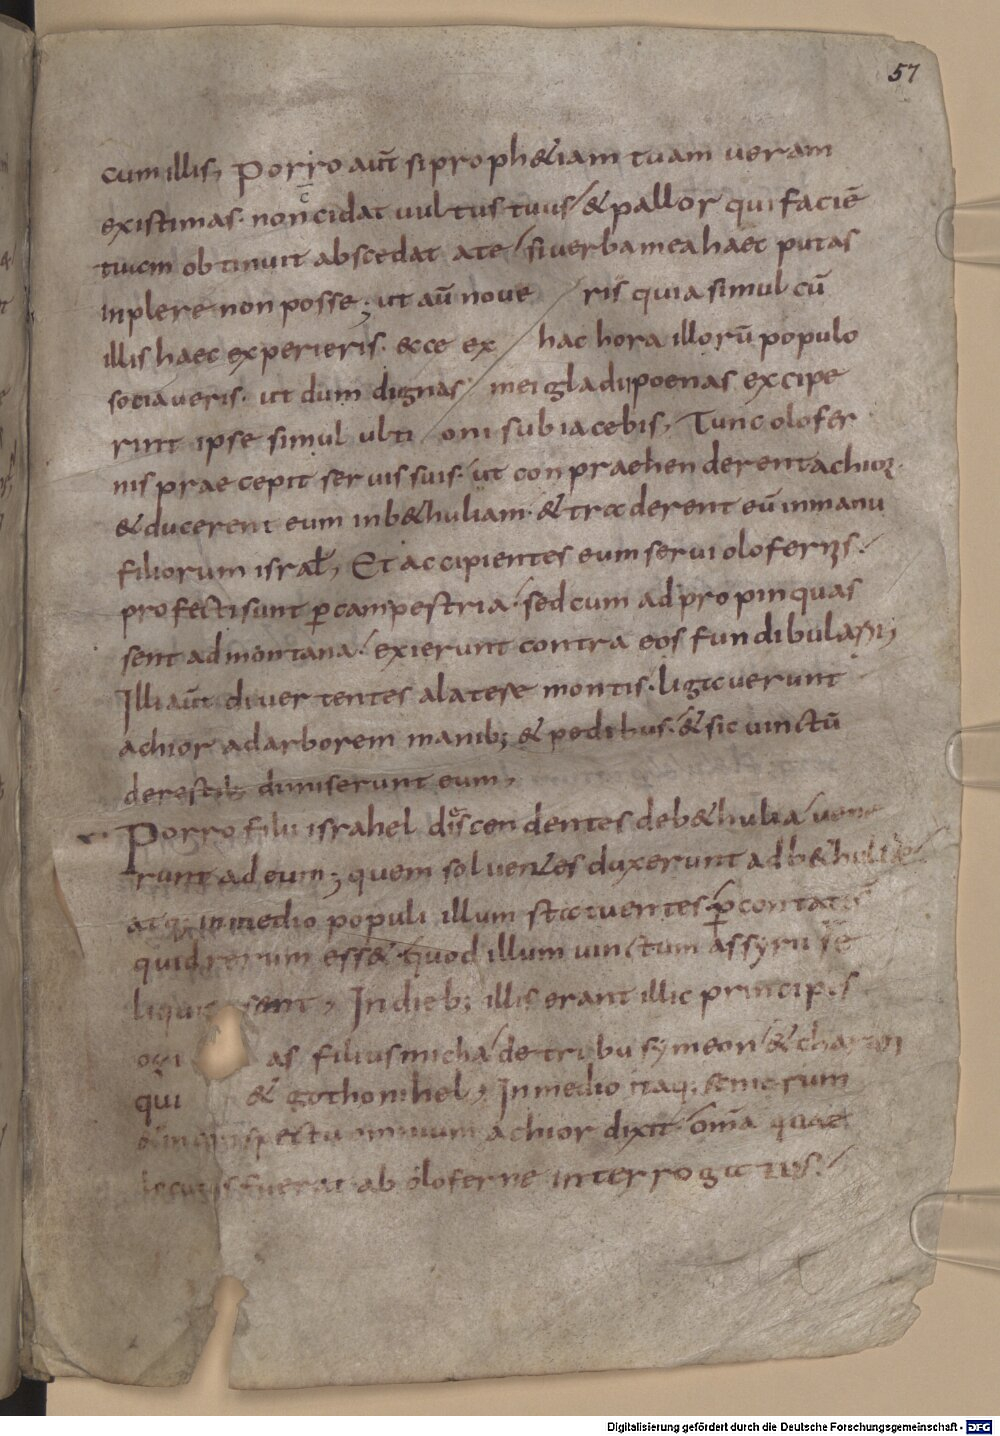 57
cum illis, Porro aūt si proph&iam tuam ueram
existimas· non c̄cidat uultus tuus/ & pallor qui faciē
tuam obtinuit abscedat a te/ si uerba mea haec putas
inplere non posse; ut aū noue ris quia simul cū
illis haec experieris· ecce ex hac hora illorū populo
sociaueris· ut dum dignas mei gladii poenas excipe
rint ipse simul ulti oni subiacebis, Tunc olofer
nis praecepit seruis suis· ut conpraehenderent achior·
& ducerent eum in b&huliam· & traderent eū in manu
filiorum israł, Et accipientes eum serui olofernis·/
profecti sunt p̱ campestria·/ sed cum adpropinquas
sent ad montana·/ exierunt contra eos fundibularii;
Illi aūt diuertentes a latere montis· ligauerunt
achior ad arborem manib; & pedibus·/ & sic uinctū
de restib; dimiserunt eum,
Porro filii israhel discendentes de b&hulia/ uene
runt ad eum; quem soluentes duxerunt ad b&huliā
atq; in medio populi illum statuentes· p̱contati s̄
quid rerum ess&·/ quod illum uinctum assyrii re
liqui sent, In dieb; illis erant illic principes
ozi as filius micha/ de tribu symeon/ & charmi
qui & gothonihel, In medio itaq; seniorum
& in conspectu omnium achior dixit/ om̄a quae
locutus fuerat ab oloferne interrogatus·/
Digitalisierung gefördert durch die Deutsche Forschungsgemeinschaft - DFG